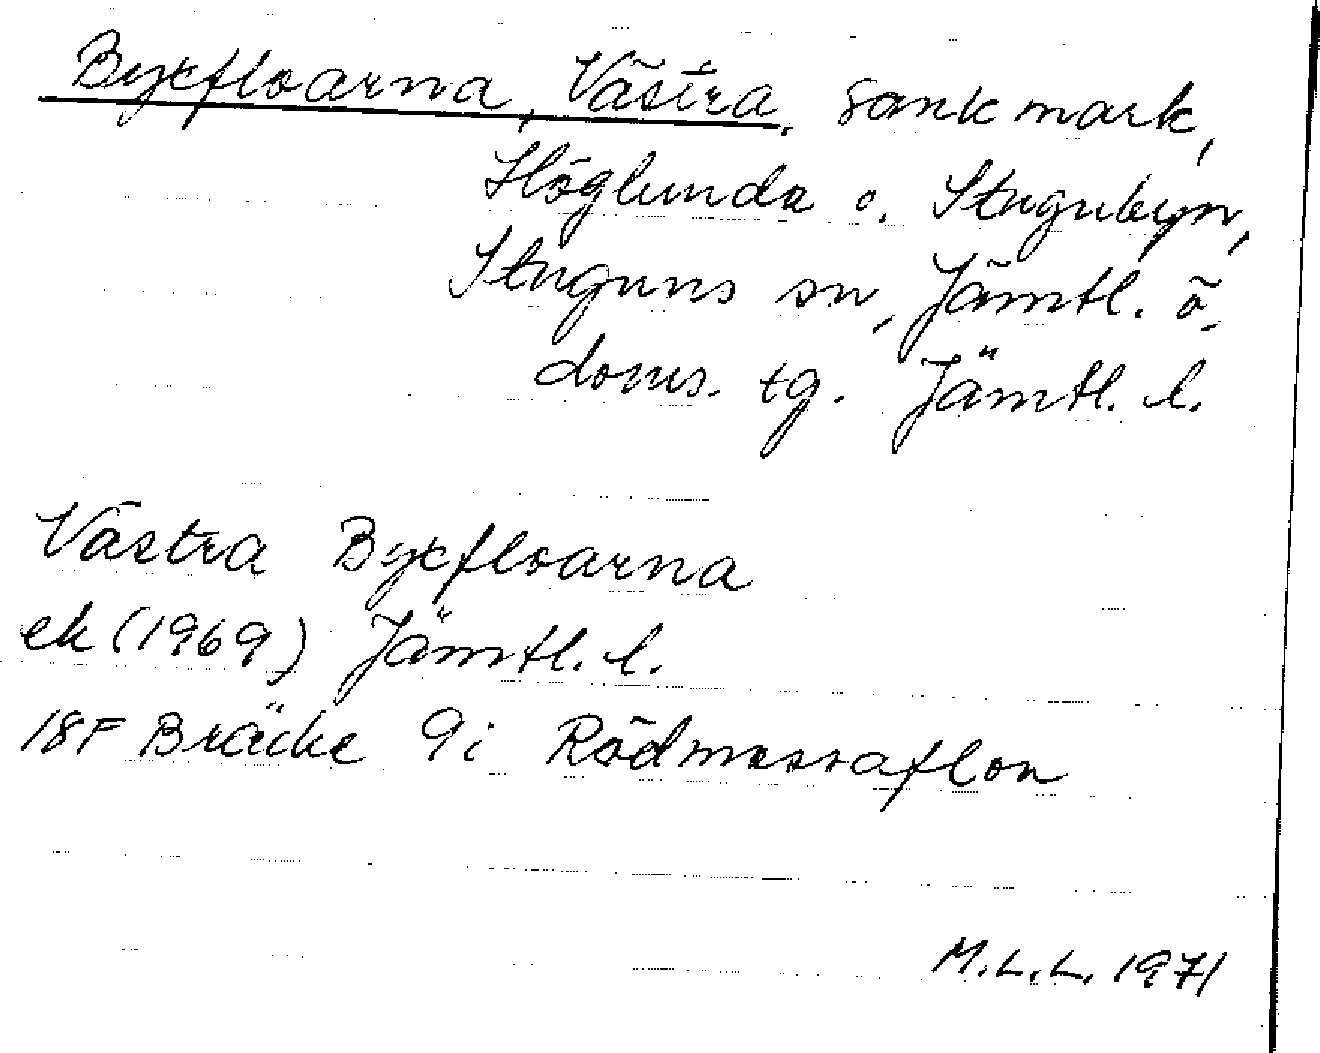 Byxfloarna, Västra, sankmark,
Höglunda o. Stugubyn,
Stuguns sn, Jämtl. ö.
doms. tg. Jämtl. l.
Västra Byxfloarna
ek (1969) Jämtl. l.
18F Bräcke 9i Rödmossaflon
M.L.L. 1971